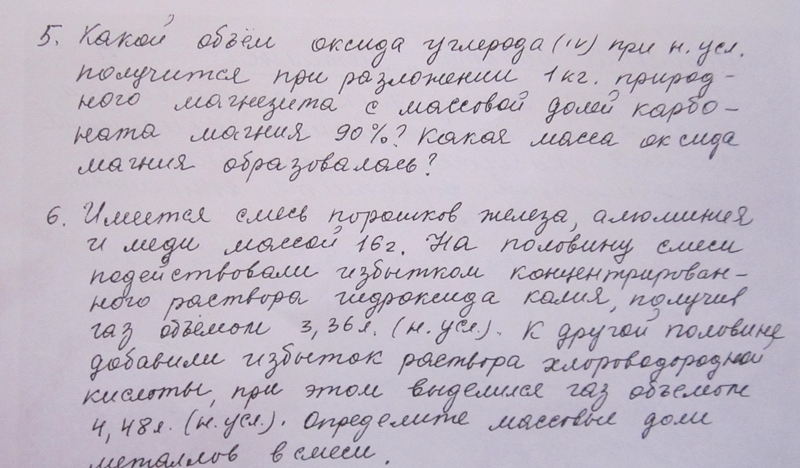 5. Какой объём оксида углерода (IV) при н. усл.
получится при разложении 1 кг. природ-
ного магнезита с массовой долей карбо-
ната магния 90%? Какая масса оксида
магния образовалась?
6. Имеется смесь порошков железа, алюминия
и меди массой 16 г. На половину смеси
подействовали избытком концентрирован-
ного раствора гидроксида калия, получив
газ объёмом 3,36 л. (н. усл.). К другой половине
добавили избыток раствора хлороводородной
кислоты, при этом выделился газ объемом
4,48 л. (н. усл.). Определите массовые доли
металлов в смеси.